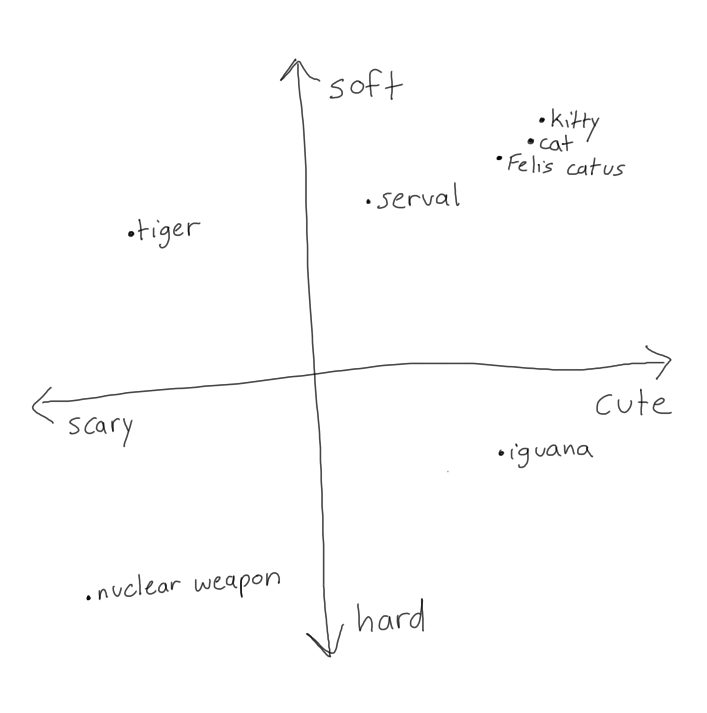 soft
kitty
cat
Felis catus
serval
tiger
cute
scary
iguana
nuclear weapon
hard